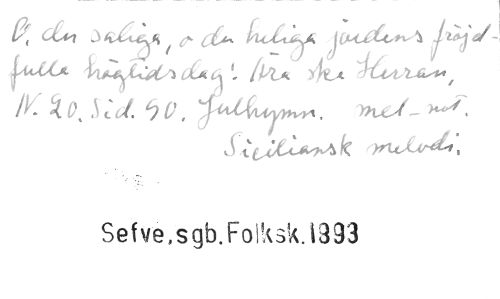 O, du saliga, o du heliga jordens fröjd-
fulla högtidsdag! Ära ske Herran,
N. 20. Sid. 90. Julhymn. mel-not.
Siciliansk melodi.
Sefve, sgb. Folksk. 1893